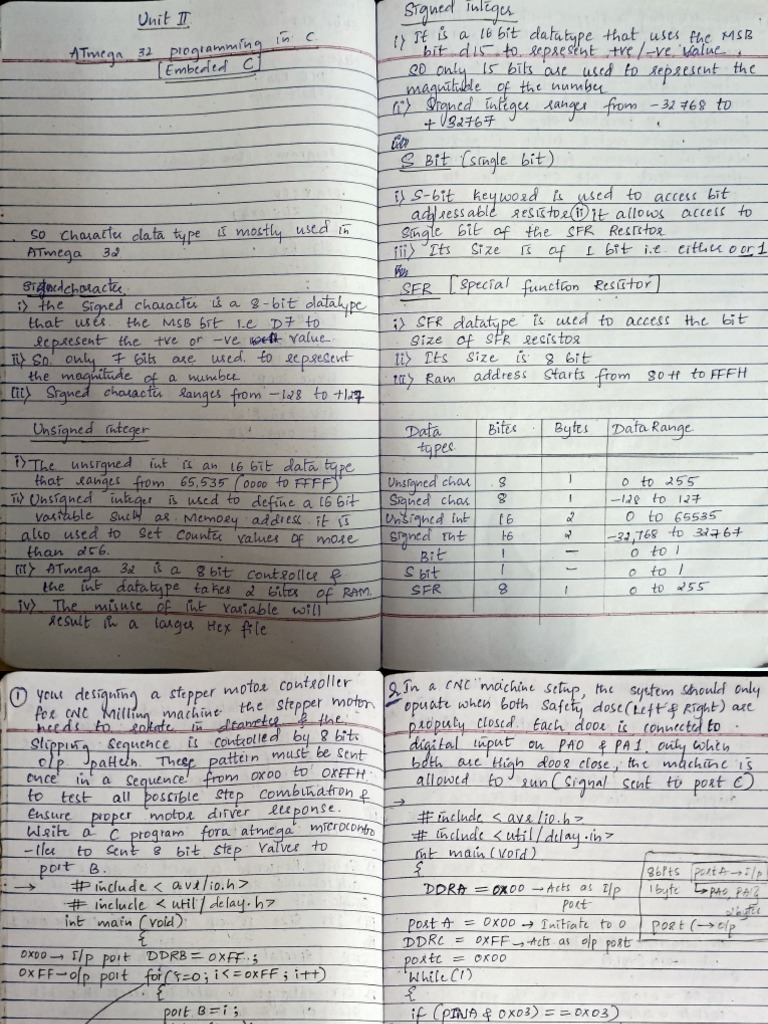 Unit II
ATmega 32 programming in C
[Embeded C]
So character data type is mostly used in
ATmega 32
Signed character
i) The Signed character is a 8-bit datatype
that uses the MSB bit i.e D7 to
represent the +ve or -ve value
ii) So only 7 bits are used to represent
the magnitude of a number
iii) Signed character ranges from -128 to +127
Unsigned integer
i) The unsigned int is an 16 bit data type
that ranges from 65,535 (0000 to FFFF)
ii) Unsigned integer is used to define a 16 bit
variable such as Memory address. it is
also used to set counter values of more
than 256.
iii) ATmega 32 is a 8 bit controller &
the int datatype takes 2 bites of RAM.
iv) The misuse of int variable will
result in a larger Hex file
Signed integer
i) It is a 16 bit datatype that uses the MSB
bit d15 to represent +ve/-ve value.
SO only 15 bits are used to represent the
magnitude of the number
ii) Signed integer ranges from -32768 to
+32767
S Bit (single bit)
i) S-bit keyword is used to access bit
addressable resistor (ii) it allows access to
single bit of the SFR Resistor
iii) Its Size is of 1 bit i.e. either 0 or 1
SFR [Special function Resistor]
i) SFR datatype is used to access the bit
size of SFR resistor
ii) Its size is 8 bit
iii) Ram address starts from 80H to FFFH
Data types. Bites Bytes Data Range
Unsigned char 8 1 0 to 255
Signed char 8 1 -128 to 127
Unsigned int 16 2 0 to 65535
Signed Int 16 2 -32,768 to 32767
Bit 1 - 0 to 1
S bit 1 - 0 to 1
SFR 8 1 0 to 255
① Your designing a stepper motor controller
for CNC Milling machine the stepper motor
needs to rotate in & the
Slipping sequence is controlled by 8 bits
o/p pattern. These pattern must be sent
once in a sequence from 0X00 to 0XFFH
to test all possible step combination &
Ensure proper motor driver response.
Write a C program for a atmega microcontro
-ller to sent 8 bit step valves to
port B.
→ # include < avr/io.h>
# include < util/delay.h>
int main (void)
{
0X00 → I/p port DDRB = 0XFF;
0XFF → o/p port for(i=0; i<=0XFF; i++)
{
port B = i;
2. In a CNC machine setup, the system should only
operate when both safety dose (Left & Right) are
properly closed. Each door is connected to
digital input on PA0 & PA1. only when
both are High door close, the machine is
allowed to run (Signal sent to port C)
→
# include < avr/io.h>
# include < util/delay.in>
int main (void)
{
8bits port A → I/p
1 byte ↳ PA0, PA1
port C → o/p
DDRA = 0X00 → Acts as I/p
port
port A = 0X00 → Initiate to 0
DDRC = 0XFF → Acts as o/p port
portc = 0X00
While(1)
{
if (PINA & 0X03) == 0X03)